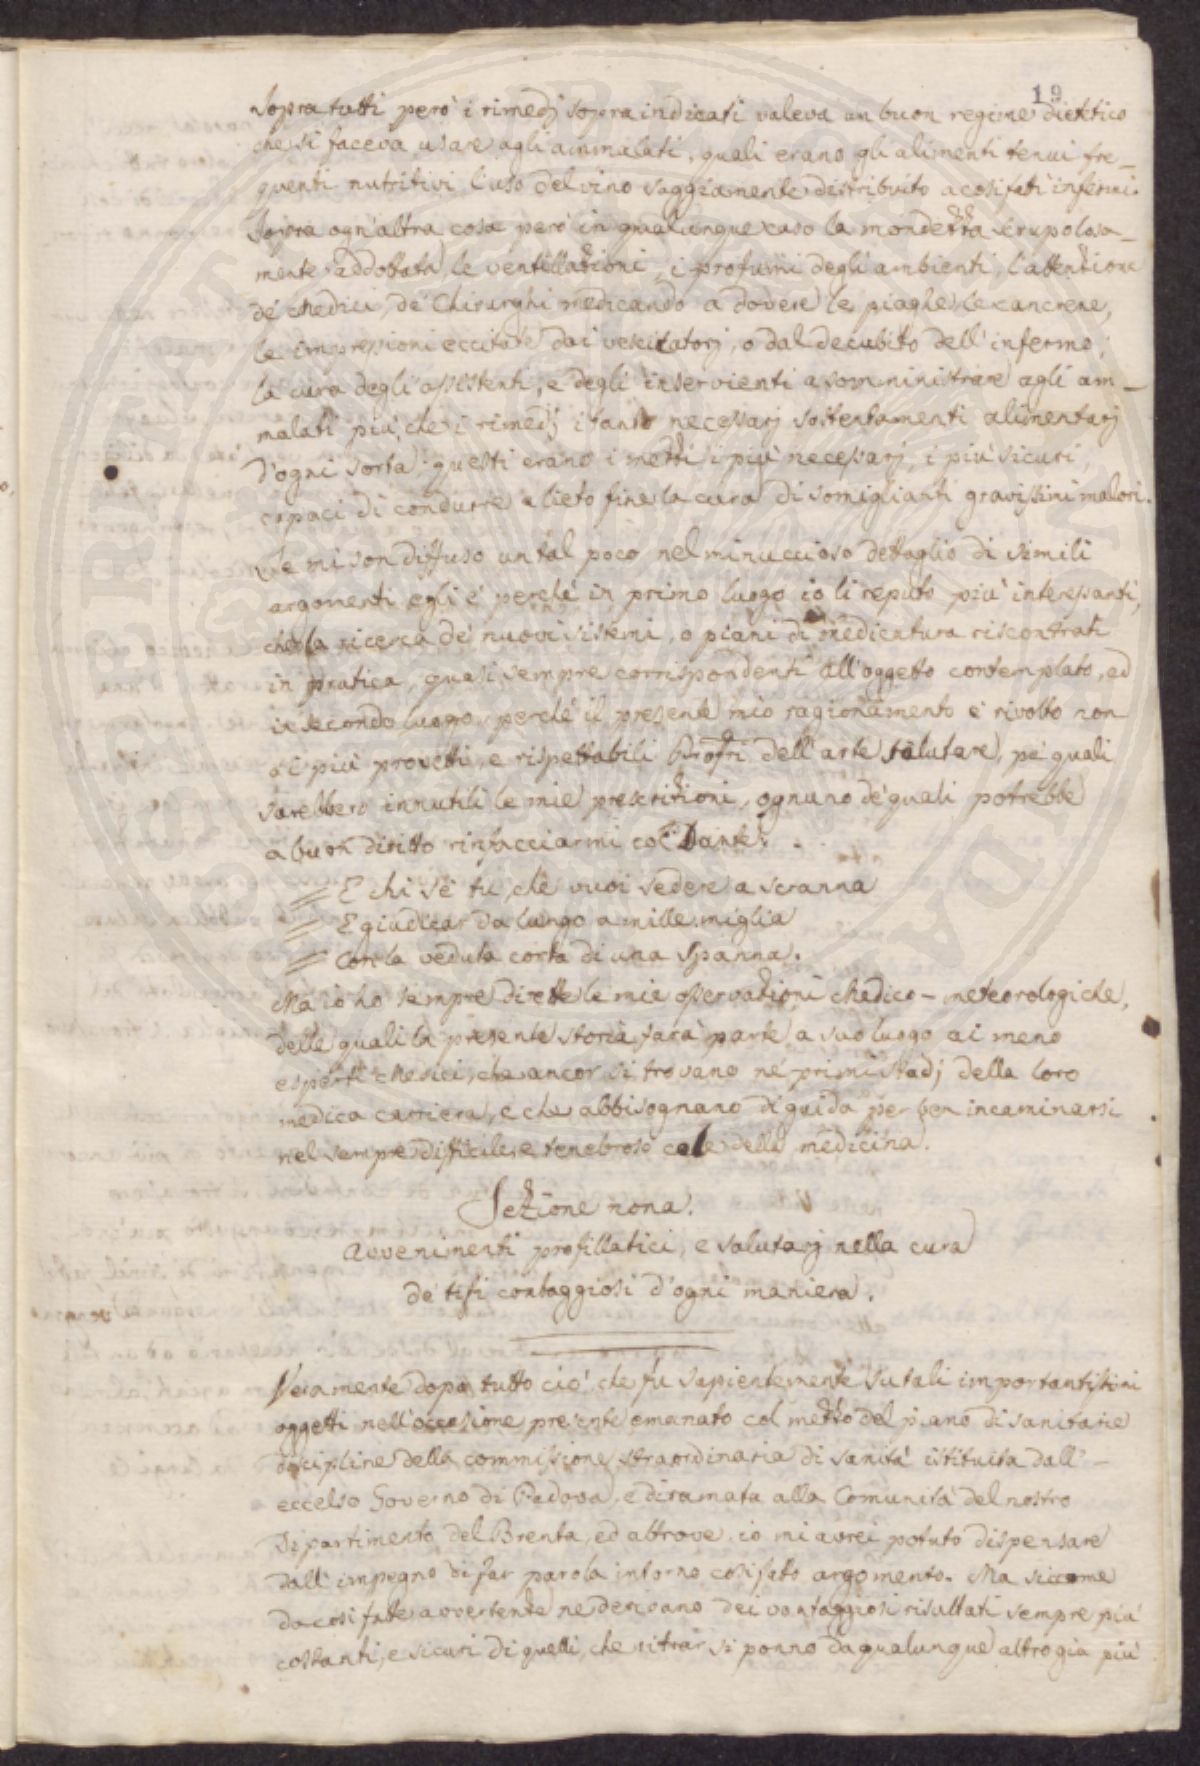 19
Sopra tutti però i rimedj sopraindicati valeva un buon regime dietetico
che si faceva usare agli ammalati, quali erano gli alimenti tenui fre-
quenti nutritivi, l'uso del vino saggiamente distribuito a cosifati infermi.
Sopra ogn'altra cosa però in qualunque caso la mondezza scrupolosa-
mente addottata, le ventillazioni, i profumi degli ambienti, l'attenzione
de' Medici, de' Chirurghi medicando a dovere le piaghe, le cancrene,
le impressioni eccitate dai vescicatorj, o dal decubito dell'infermo,
la cura degli assistenti, e degli inservienti a somministrare agli am-
malati più, che i rimedj i tanto necessarj sostentamenti alimentarj
d'ogni sorta; questi erano i mezzi i più necessarj, i più sicuri,
capaci di condurre a lieto fine la cura di somiglianti gravissimi malori.
Se mi son diffuso un tal poco nel minuccioso dettaglio di simili
argomenti, egli è perchè in primo luogo io li reputo più interessanti,
che la ricerca de' nuovi sistemi, o piani di medicatura riscontrati
in pratica, quasi sempre corrispondenti all'oggetto contemplato, ed
in secondo luogo, perchè il presente mio ragionamento è rivolto non
ai più provetti, e rispettabili Profri dell'arte salutare, pe' quali
sarebbero innutili le mie prescrizioni, ognuno de' quali potrebbe
a buon diritto rinfacciarmi col Dante:
E chi se' tu, che vuoi sedere a scranna
E giudicar da lungo a mille miglia
Con la veduta corta di una spanna.
Ma io ho sempre dirette le mie osservazioni Medico-meteorologiche,
delle quali la presente storia farà parte a suo luogo ai meno
esperti Medici, che ancor si trovano ne' primi stadj della loro
medica carriera, e che abbisognano di guida per ben incaminarsi
nel sempre difficile, e tenebroso della medicina.
Sezione nona.
Avvenimenti profillatici, e salutarj nella cura
de' tifi contaggiosi d'ogni maniera.
Veramente dopo tutto ciò, che fu sapientemente su tali importantissimi
oggetti nell'occasione presente emanato col mezzo del piano di sanitarie
discipline della commissione straordinaria di sanità istituita dall'-
eccelso Governo di Padova, e diramata alla Comunità del nostro
Dipartimento del Brenta, ed altrove, io mi avrei potuto dispensare
dall'impegno di far parola intorno cosifato argomento. Ma siccome
da così fatte avvertenze ne derivano dei vantaggiosi risultati sempre più
costanti, e sicuri di quelli, che ritrar si ponno da qualunque altro già più